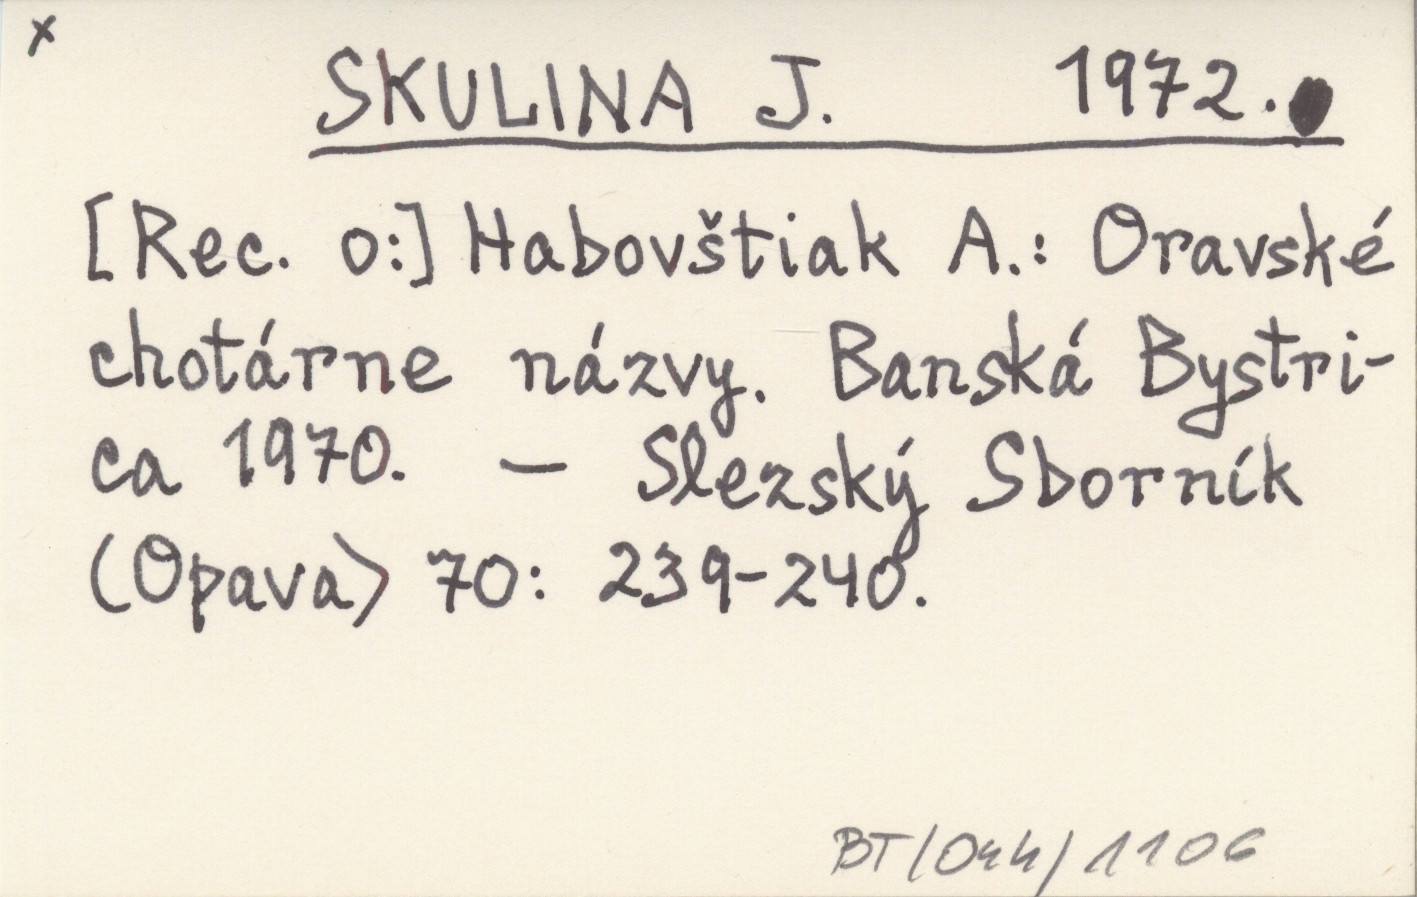 x
SKULINA J. 1972.
[Rec. o:] Habovštiak A.: Oravské
chotárne názvy. Banská Bystri-
ca 1970. – Slezský Sborník
(Opava) 70: 239-240.
BT/044/1106